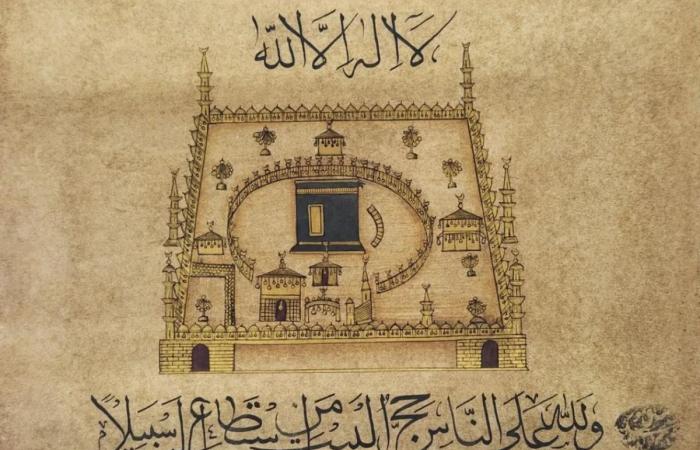 لا اله الا الله
ولله على الناس حج البيت من استطاع اسبيلا